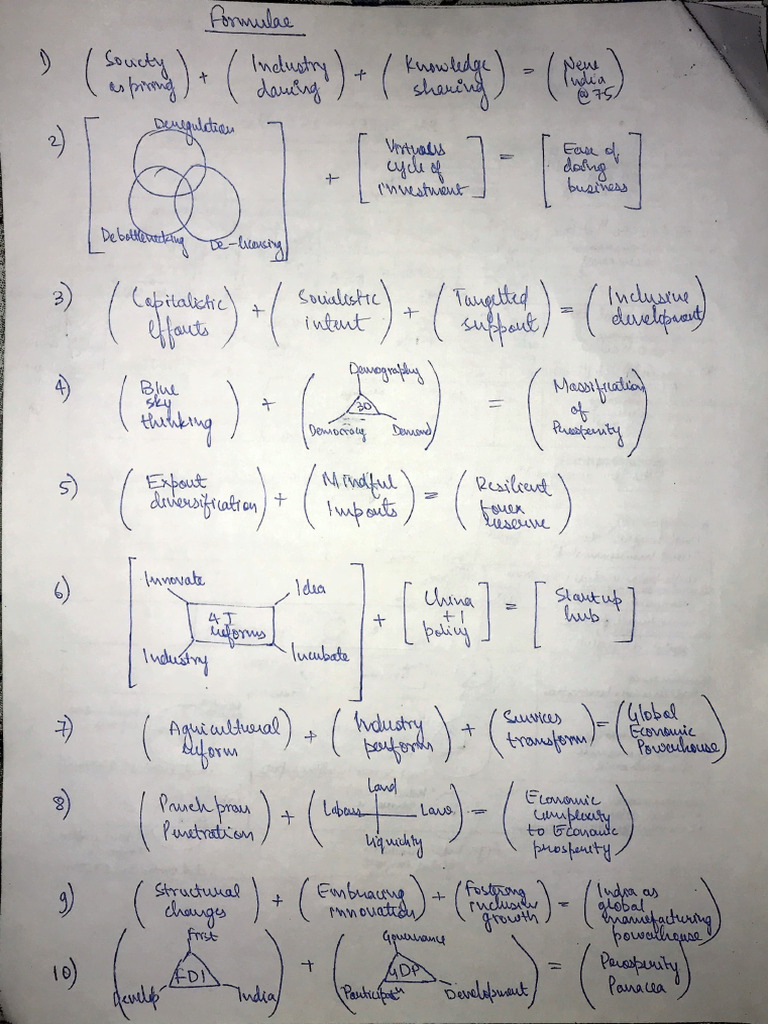 Formulae
1) (Society aspiring) + (Industry daring) + (Knowledge sharing) = (New India @75)
2) [Deregulation Debottlenecking De-licensing] + [Virtuous cycle of investment] = [Ease of doing business]
3) (Capitalistic efforts) + (Socialistic intent) + (Targetted support) = (Inclusive development)
4) (Blue sky thinking) + (Demography 3D Democracy Demand) = (Massification of Prosperity)
5) (Export diversification) + (Mindful imports) = (Resilient forex reserve)
6) [Innovate Idea 4 I reforms Industry Incubate] + [China +1 policy] = [Startup hub]
7) (Agricultural reform) + (Industry perform) + (Services transform) = (Global Economic Powerhouse)
8) (Panch pran Penetration) + (Land Labour Laws Liquidity) = (Economic complexity to Economic prosperity)
9) (Structural changes) + (Embracing innovation) + (Fostering inclusive growth) = (India as global manufacturing powerhouse)
10) (First FDI Develop India) + (Governance GDP Participatn Development) = (Prosperity Panacea)